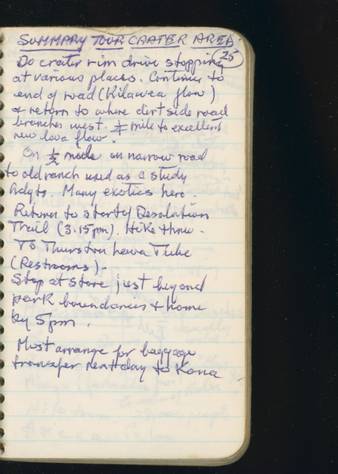 SUMMARY TOUR CRATER AREA
25
Do crater rim drive stopping
at various places. Continue to
end of road (Kilawea flow)
& return to where dirt side road
branches west. ¾ mile to excellent
new lava flow.
On ½ mile on narrow road
to old ranch used as a study
hdqts. Many exotics here.
Return to start of Desolation
Trail (3:15pm). Hike thru.
To Thurston Lava Tube
(Restrooms).
Stop at store just beyond
park boundaries & home
by 5pm.
Must arrange for baggage
transfer next day to Kona